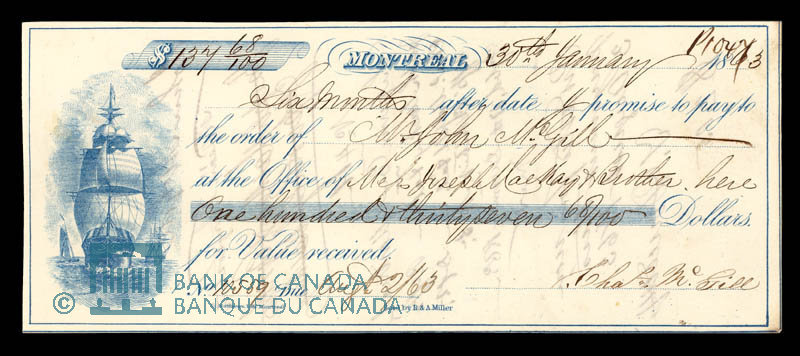 $ 137 68/100 MONTREAL 30th January 1863
Six Months after date I promise to pay to
the order of Mr. John McGill
at the Office of Mess. Joseph MacKay & Brother here
One hundred & thirty seven 68/100 Dollars.
for Value received.
No. due Augt 2/63 Chas. McGill
by R & A Miller
© BANK OF CANADA
BANQUE DU CANADA